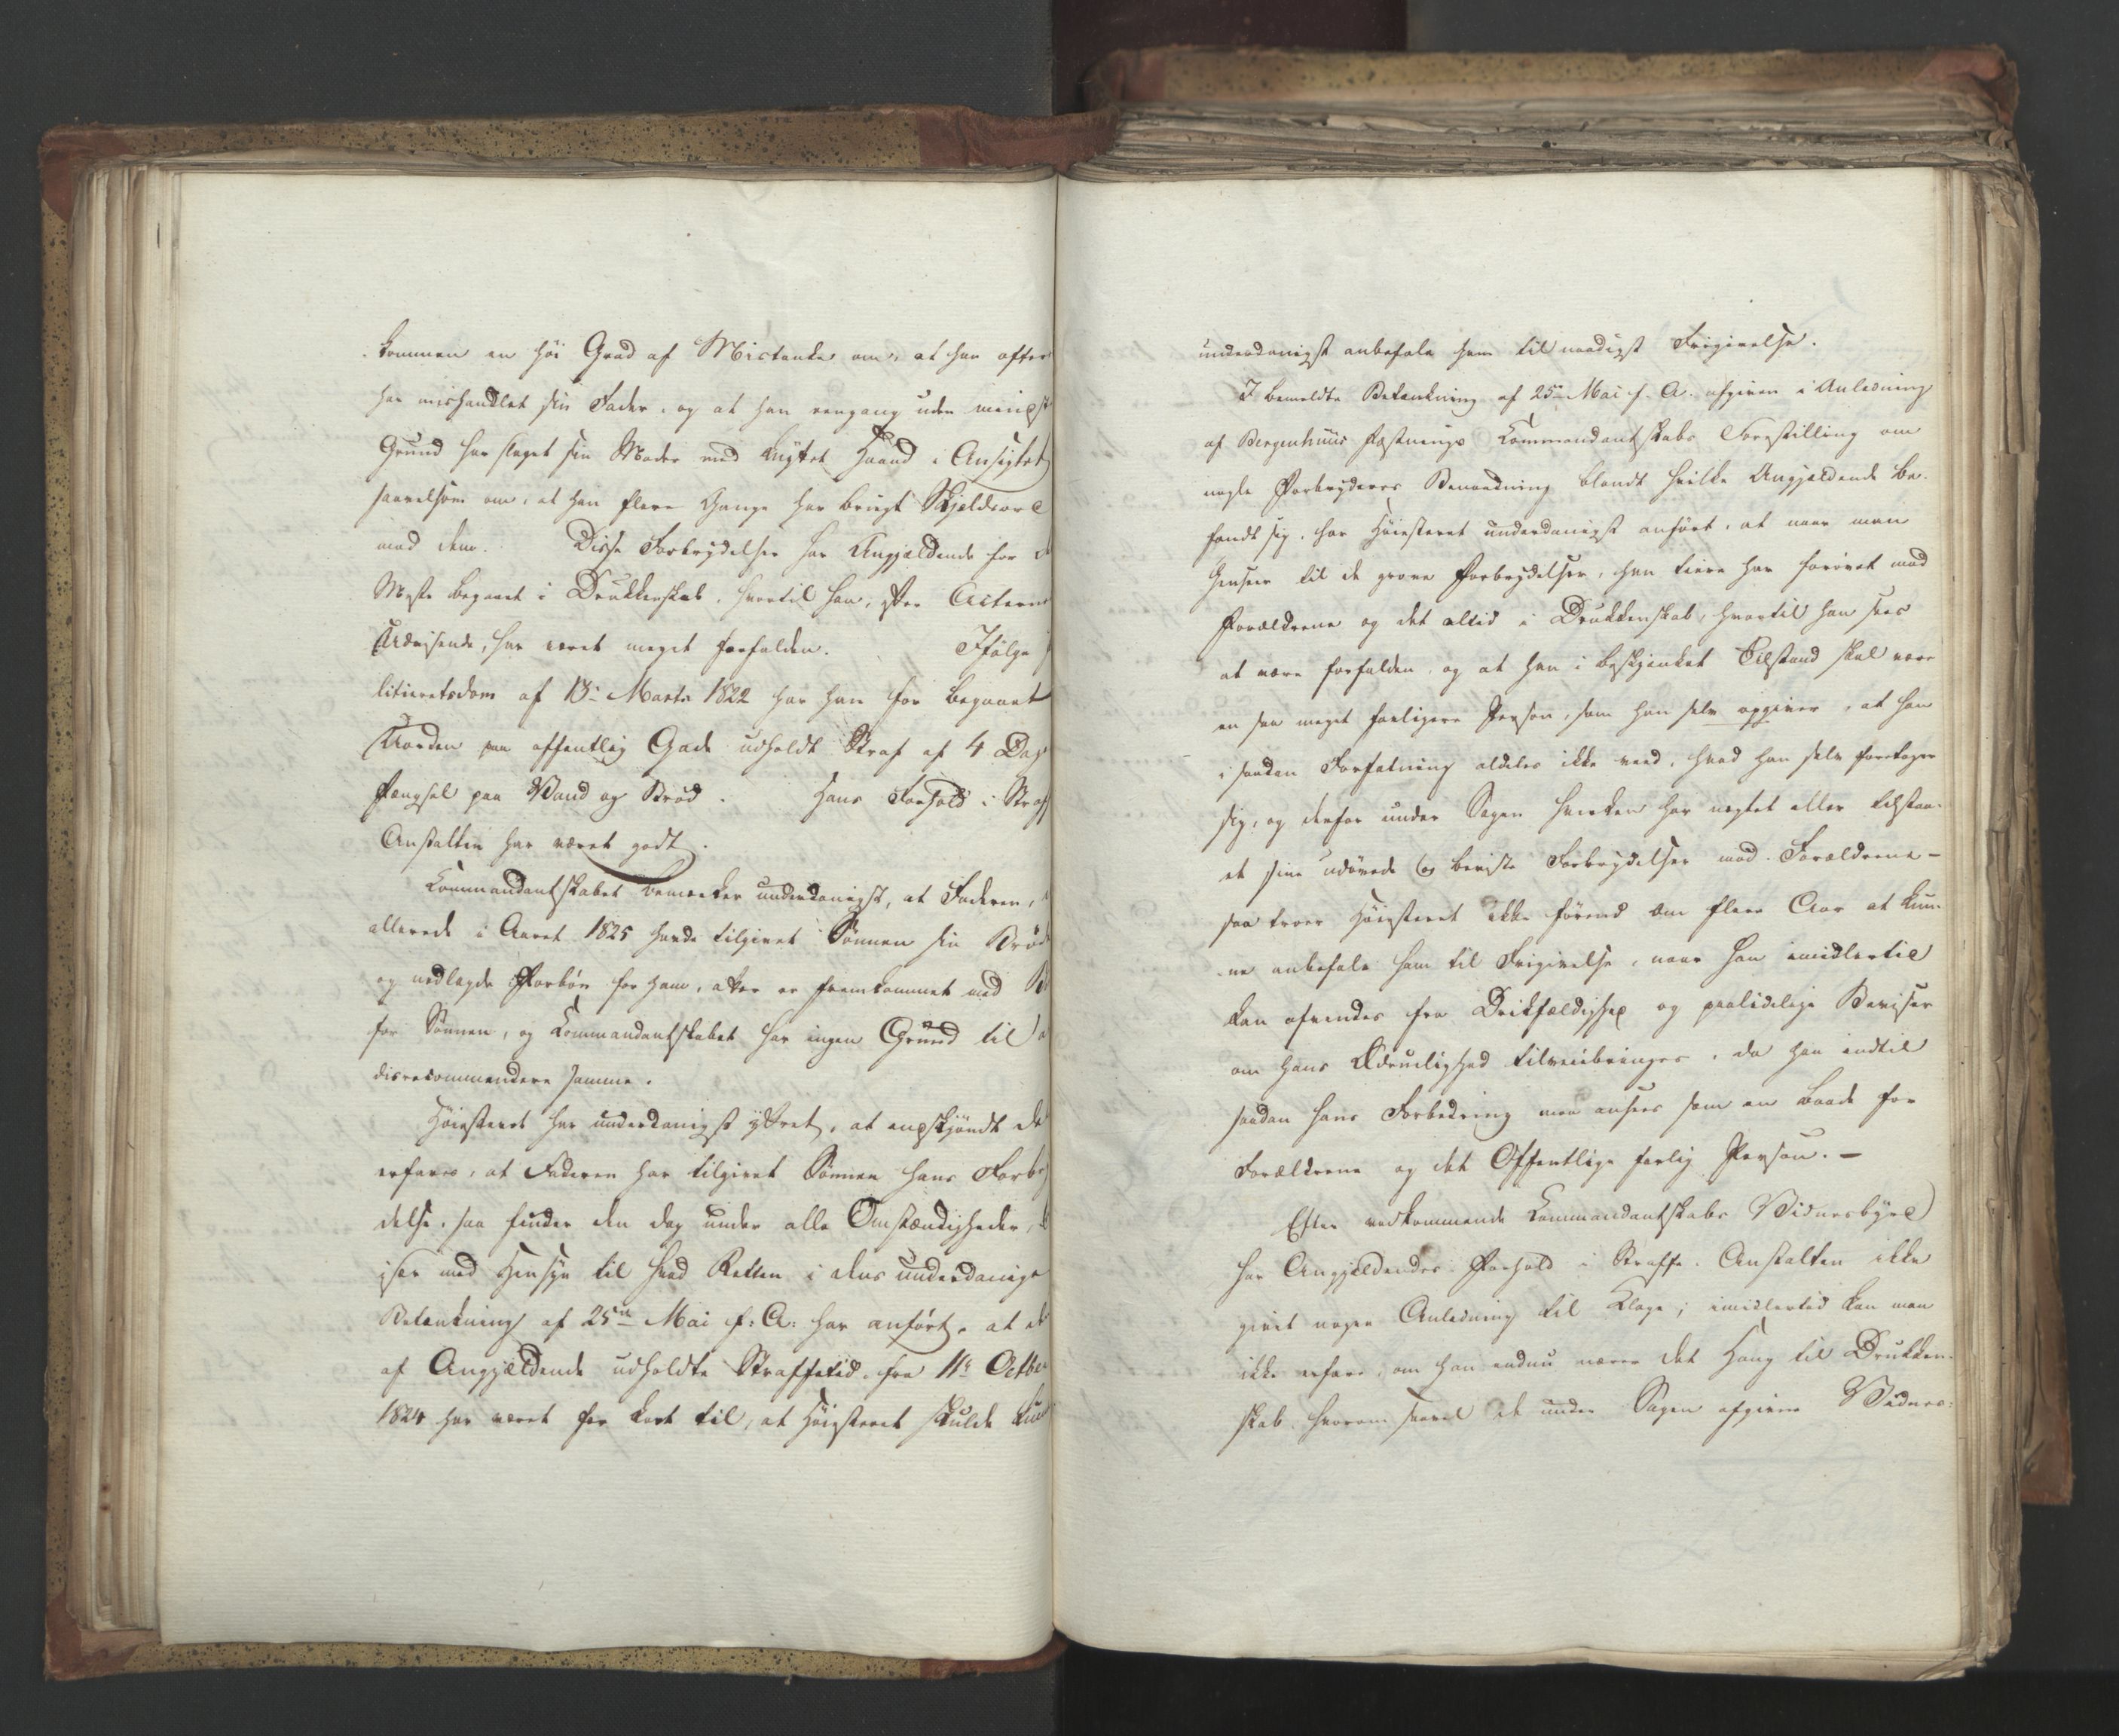 kommen en høi Grad af Mistanke om, at han oftere
har mishandlet sin Fader, og at han eengang uden mindste
Grund har slaget sin Moder med knyttet Haand i Ansigtet
saavelsom om, at han flere Gange har brugt Skjeldsord
mod dem. Disse Forbrydelser har Angjældende for d
Meste begaaet i Drukkenskab, hvortil han, efter Acterne
Udvisende, har været meget forfalden. Ifølge
litieretsdom af 13de Marts 1822 har han for begaaet
Uorden paa offentlig Gade udholdt Straf af 4 Dages
Fængsel paa Vand og Brød. Hans Forhold i Straf
Anstalten har været godt.
Kommandantskabet bemærker underdanigst, at Faderen,
allerede i Aaret 1825 havde tilgivet Sønnen sin Brøde
og nedlagde Forbøn for ham, atter er fremkommet med B
for Sønnen, og Kommandantskabet har ingen Grund til a
disrecommendere samme.
Høiesteret har underdanigst yttret, at endskjøndt de
erfares, at Faderen har tilgivet Sønnen hans Forbry
delse, saa finder den dog under alle Omstændigheder,
især med Hensyn til hvad Retten i dens underdanige
Betænkning af 25de Mai f: A: har anført, at de
af Angjældende udholdte Straffetid fra 11te Octbe
1824 har været for kort til, at Høiesteret skulde kun
underdanigst anbefale ham til naadigst Frigivelse.
I bemeldte Betænkning af 25de Mai f. A. afgiven i Anledning
af Bergenhuus Fæstnings Kommandantskabs Forestilling om
nogle Forbryderes Benaadning blandt hvilke Angjældende be-
fandt sig, har Høiesteret underdanigst anført, at naar man
henseer til de grove Forbrydelser, han tiere har forøvet mod
Forældrene og det altid i Drukkenskab, hvortil han sees
at være forfalden, og at han i beskjænket Tilstand skal være
en saa meget farligere Person, som han selv opgiver, at han
i saadan Forfatning aldeles ikke veed, hvad han selv foretager
sig, og derfor under Sagen hverken har negtet eller tilstaa-
et sine udøvede og beviste Forbrydelser mod Forældrene –
saa troer Høiesteret ikke førend om flere Aar at kun-
ne anbefale ham til Frigivelse, naar han imidlertid
kan afvendes fra Drikfældighed og paalidelige Beviser
om hans Ædruelighed tilveiebringes, da han indtil
saadan hans Forbedring maa ansees som en baade for
Forældrene og det Offentlige farlig Person. –
Efter vedkommende Kommandantskabs Vidnesbyrd
har Angjældendes Forhold i Straffe-Anstalten ikke
givet nogen Anledning til Klage; imidlertid kan man
ikke erfare, om han endnu nærer det Hang til Drukken-
skab, hvorom saavel de under Sagen afgivne Vidnes-